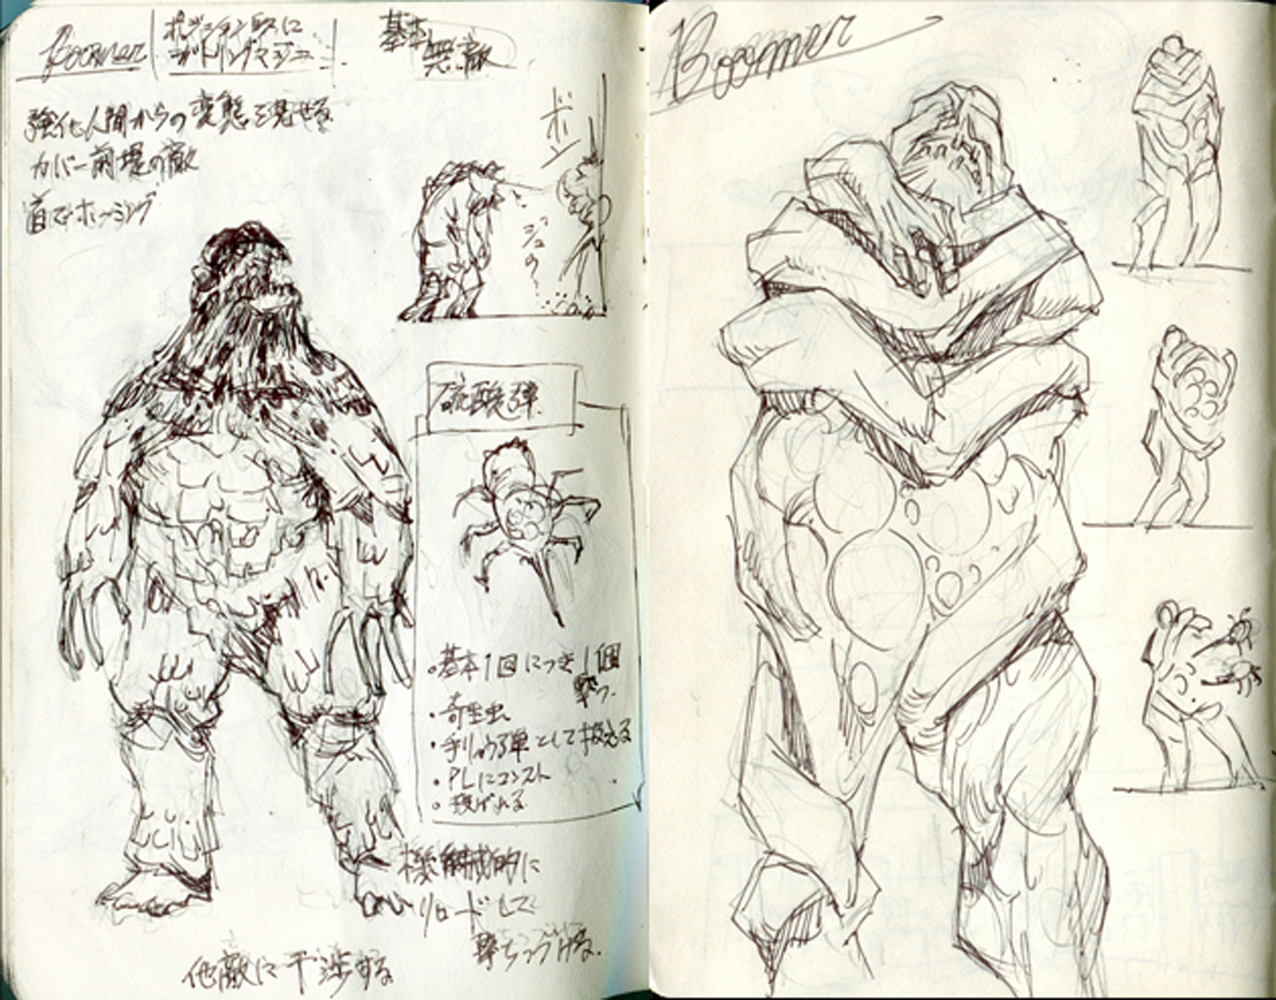 Boomer
基本
無敵
強化人間からの変態を見せる
カバー前提の敵
首でホーミング
ボン
硫酸弾
・基本1回につき1個
撃つ.
・寄生虫
・手りゅう弾として扱える
・PLにコンスト
・投げれる
機械的に
リロードして
撃ちつづける.
他敵に干渉する
Boomer